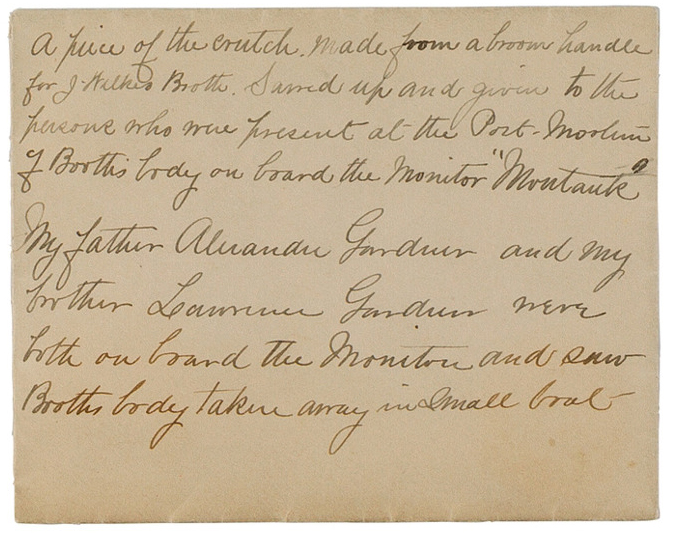 A piece of the crutch. made from a broom handle
for J. Wilkes Booth. Sawed up and given to the
persons who were present at the Post-Mortem
of Booth's body on board the Monitor "Montauk"
My father Alexander Gardner and my
brother Lawrence Gardner were
both on board the Monitor and saw
Booth's body taken away in small boat